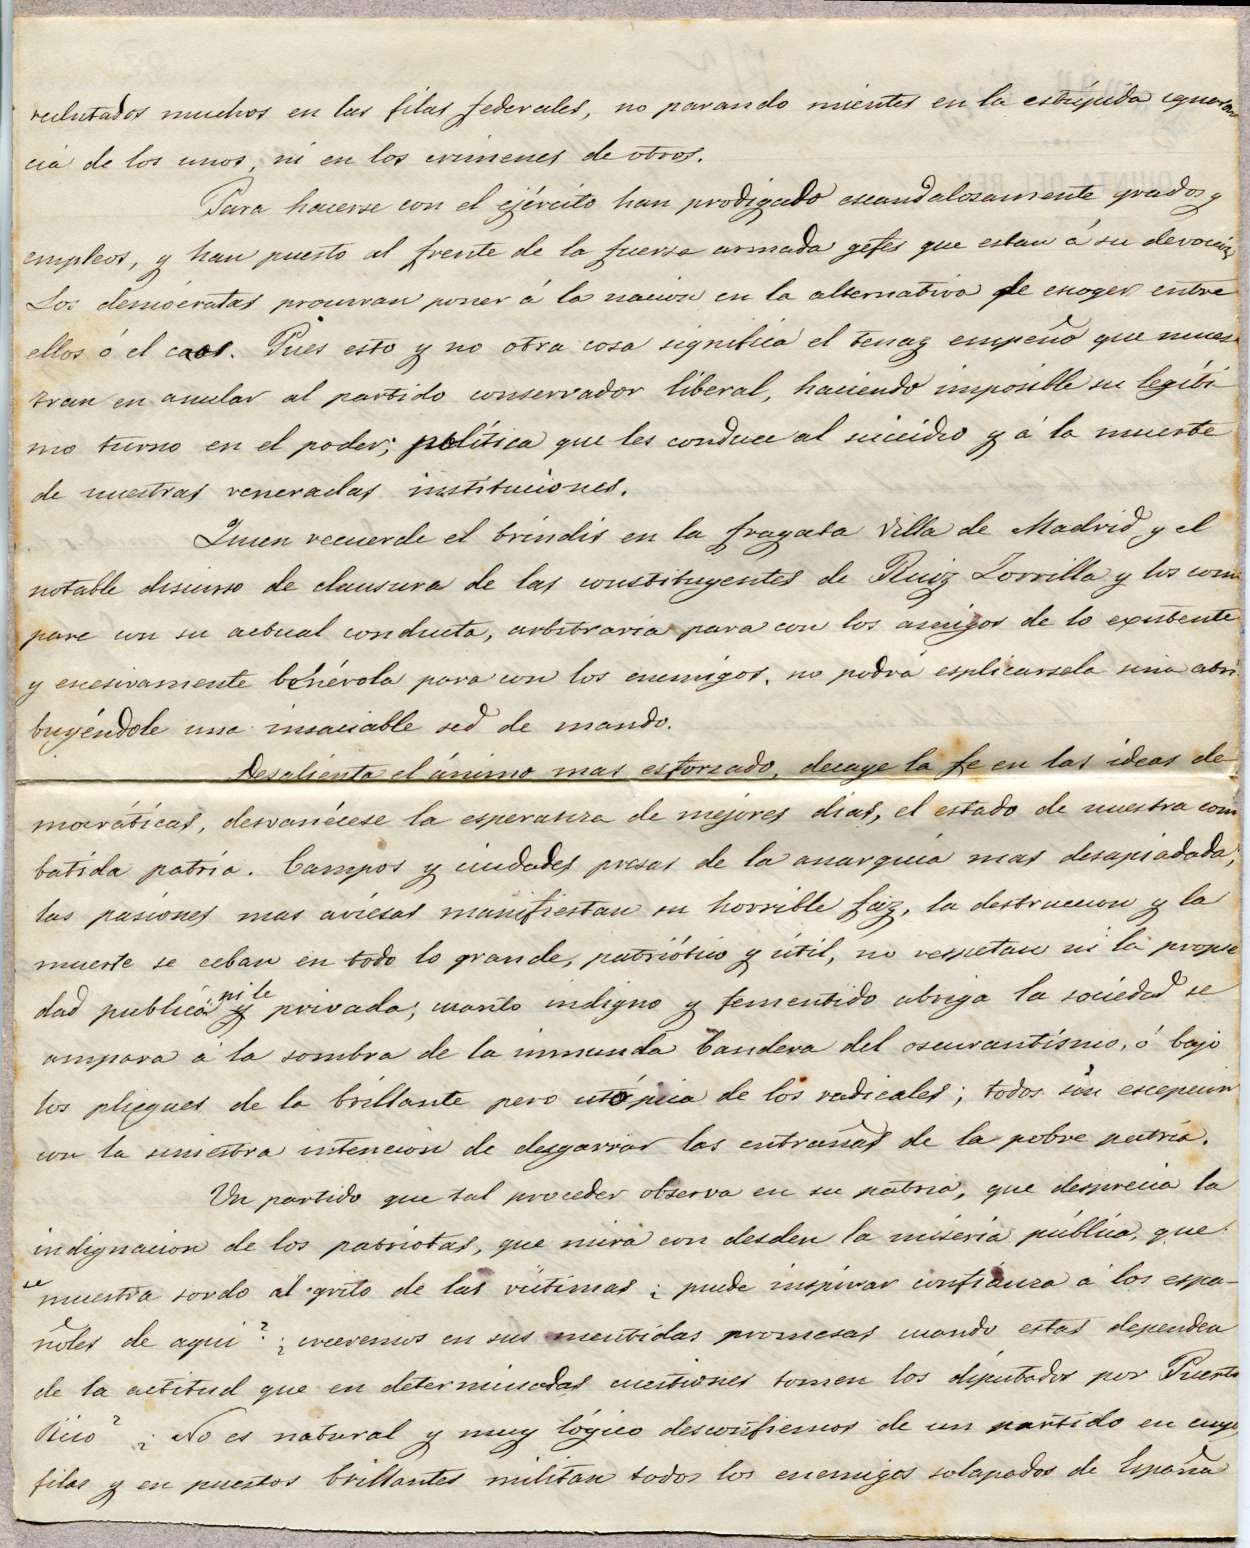 reclutados muchos en las filas federales, no parando mientes en la estúpida ignoran
cia de los unos, ni en los crimenes de otros.
Para hacerse con el ejército han prodigado escandalosamente grados y
empleos, y han puesto al frente de la fuersa armada gefes que estan á su devocion
Los demócratas procuran poner á la nacion en la alternativa de escoger entre
ellos ó el caos. Pues esto y no otra cosa significa el tenaz empeño que mues
tran en anular al partido conservador liberal, haciendo imposible su legíti
mo turno en el poder; política que les conduce al suicidio y á la muerte
de nuestras veneradas instituciones.
Quien recuerde el bríndis en la fragata Villa de Madrid y el
notable discurso de clausura de las constituyentes de Ruiz Zorrilla y los com
pare con su actual conducta, arbitraria para con los amigos de lo existente
y excesivamente benévola para con los enemigos, no podrá esplicarsela sino atri
buyéndole una insaciable sed de mando.
Desalienta el ánimo mas esforzado, decaye la fe en las ideas de
mocráticas, desvanécese la esperanza de mejores dias, el estado de nuestra com
batida patria. Campos y ciudades presas de la anarquia mas desapiadada;
las pasiones mas aviesas manifiestan su horrible faz, la destruccion y la
muerte se ceban en todo lo grande, patriótico y útil, no respetan ni la propie
dad publica ni la privada; cuanto indigno y fementido abriga la sociedad se
ampara á la sombra de la inmunda bandera del oscurantismo, ó bajo
los pliegues de la brillante pero utópica de los radicales; todos sin escepcion
con la siniestra intencion de desgarrar las entrañas de la pobre patria.
Un partido que tal proceder observa en su patria, que desprecia la
indignacion de los patriotas, que mira con desden la miseria pública, que
se muestra sordo al grito de las víctimas ¿ puede inspirar confianza á los espa-
ñoles de aqui? ¿ creeremos en sus mentidas promesas cuando estas dependen
de la actitud que en determinadas cuestiones tomen los diputados por Puerto
Rico? ¿ No es natural y muy lógico desconfiemos de un partido en cuyas
filas y en puestos brillantes militan todos los enemigos solapados de España